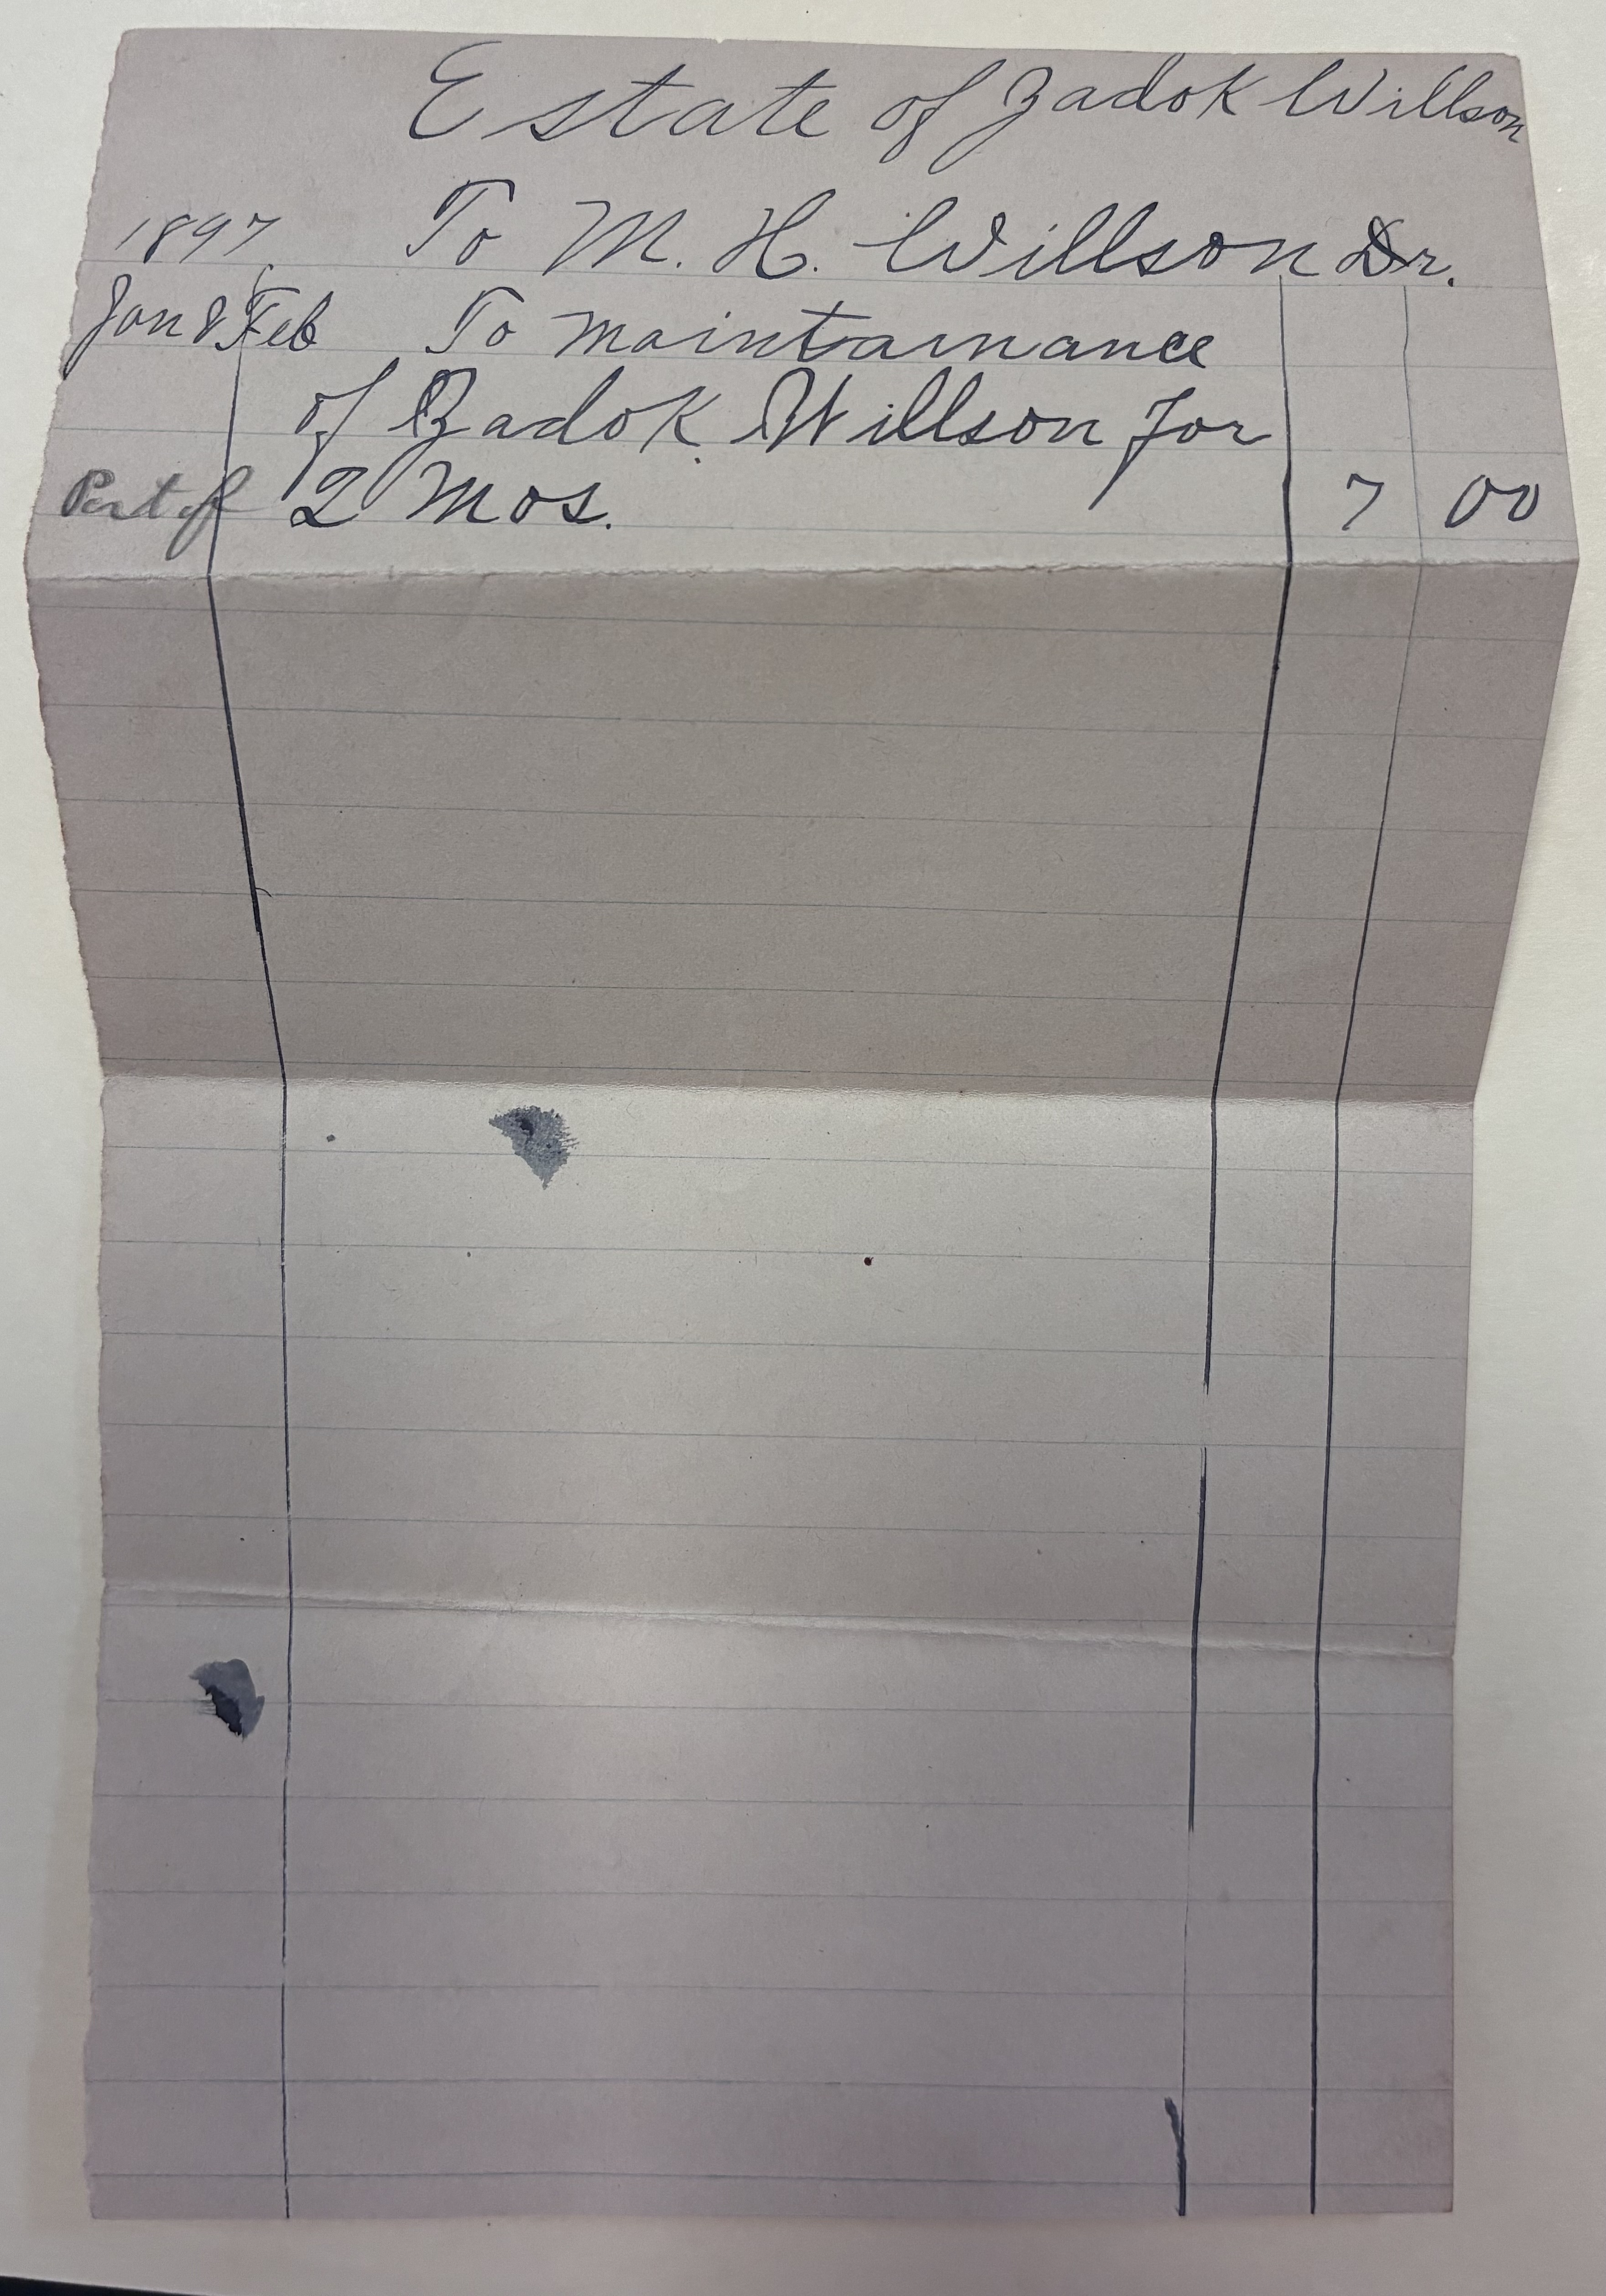 Estate of Zadok Willson
1897 To M. H. Willson Dr.
Jan & Feb To maintainance
of Zadok Willson for
Part of 2 Mos. 7 00